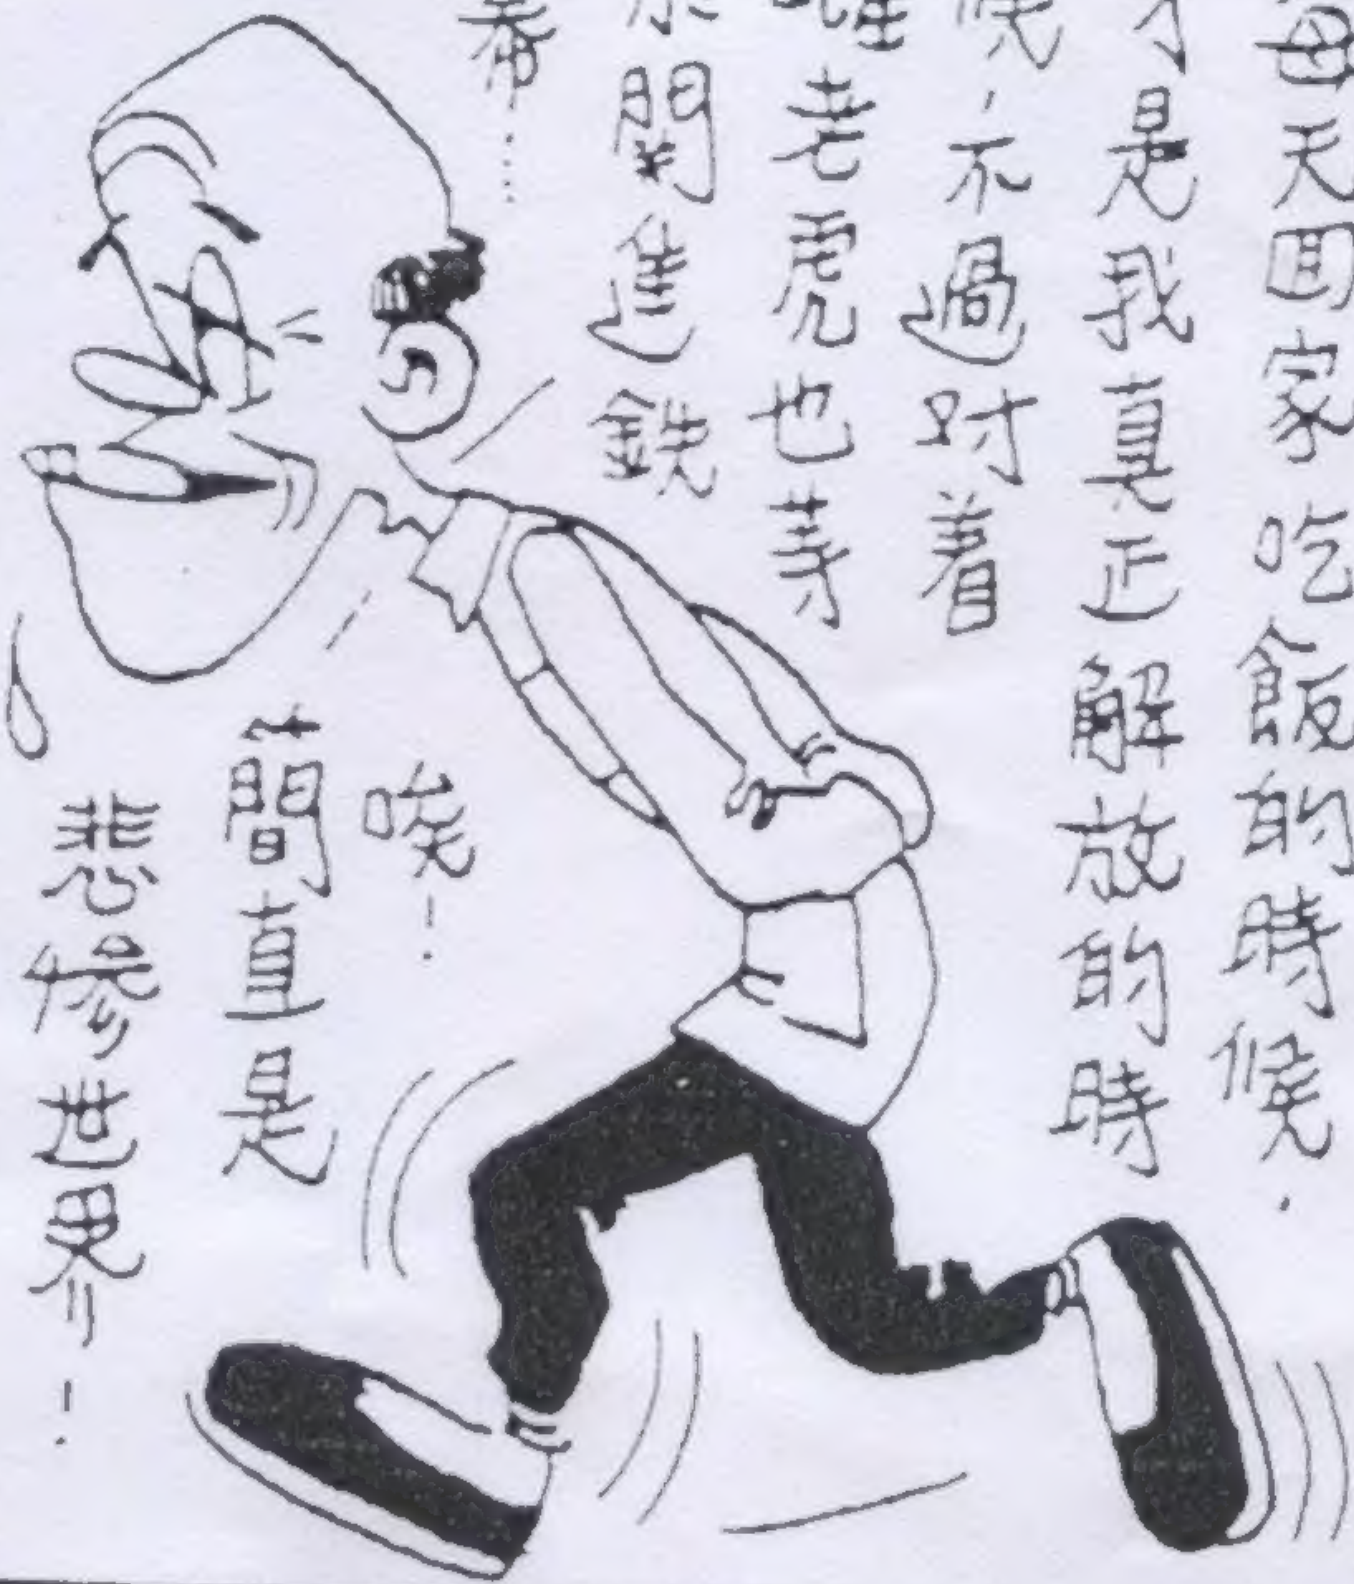 每天回家吃飯的時候.
才是我真正解放的時
候,不過吋着
雌老虎也等
関進鉄
幕……
唉!
簡直是
悲惨世界!